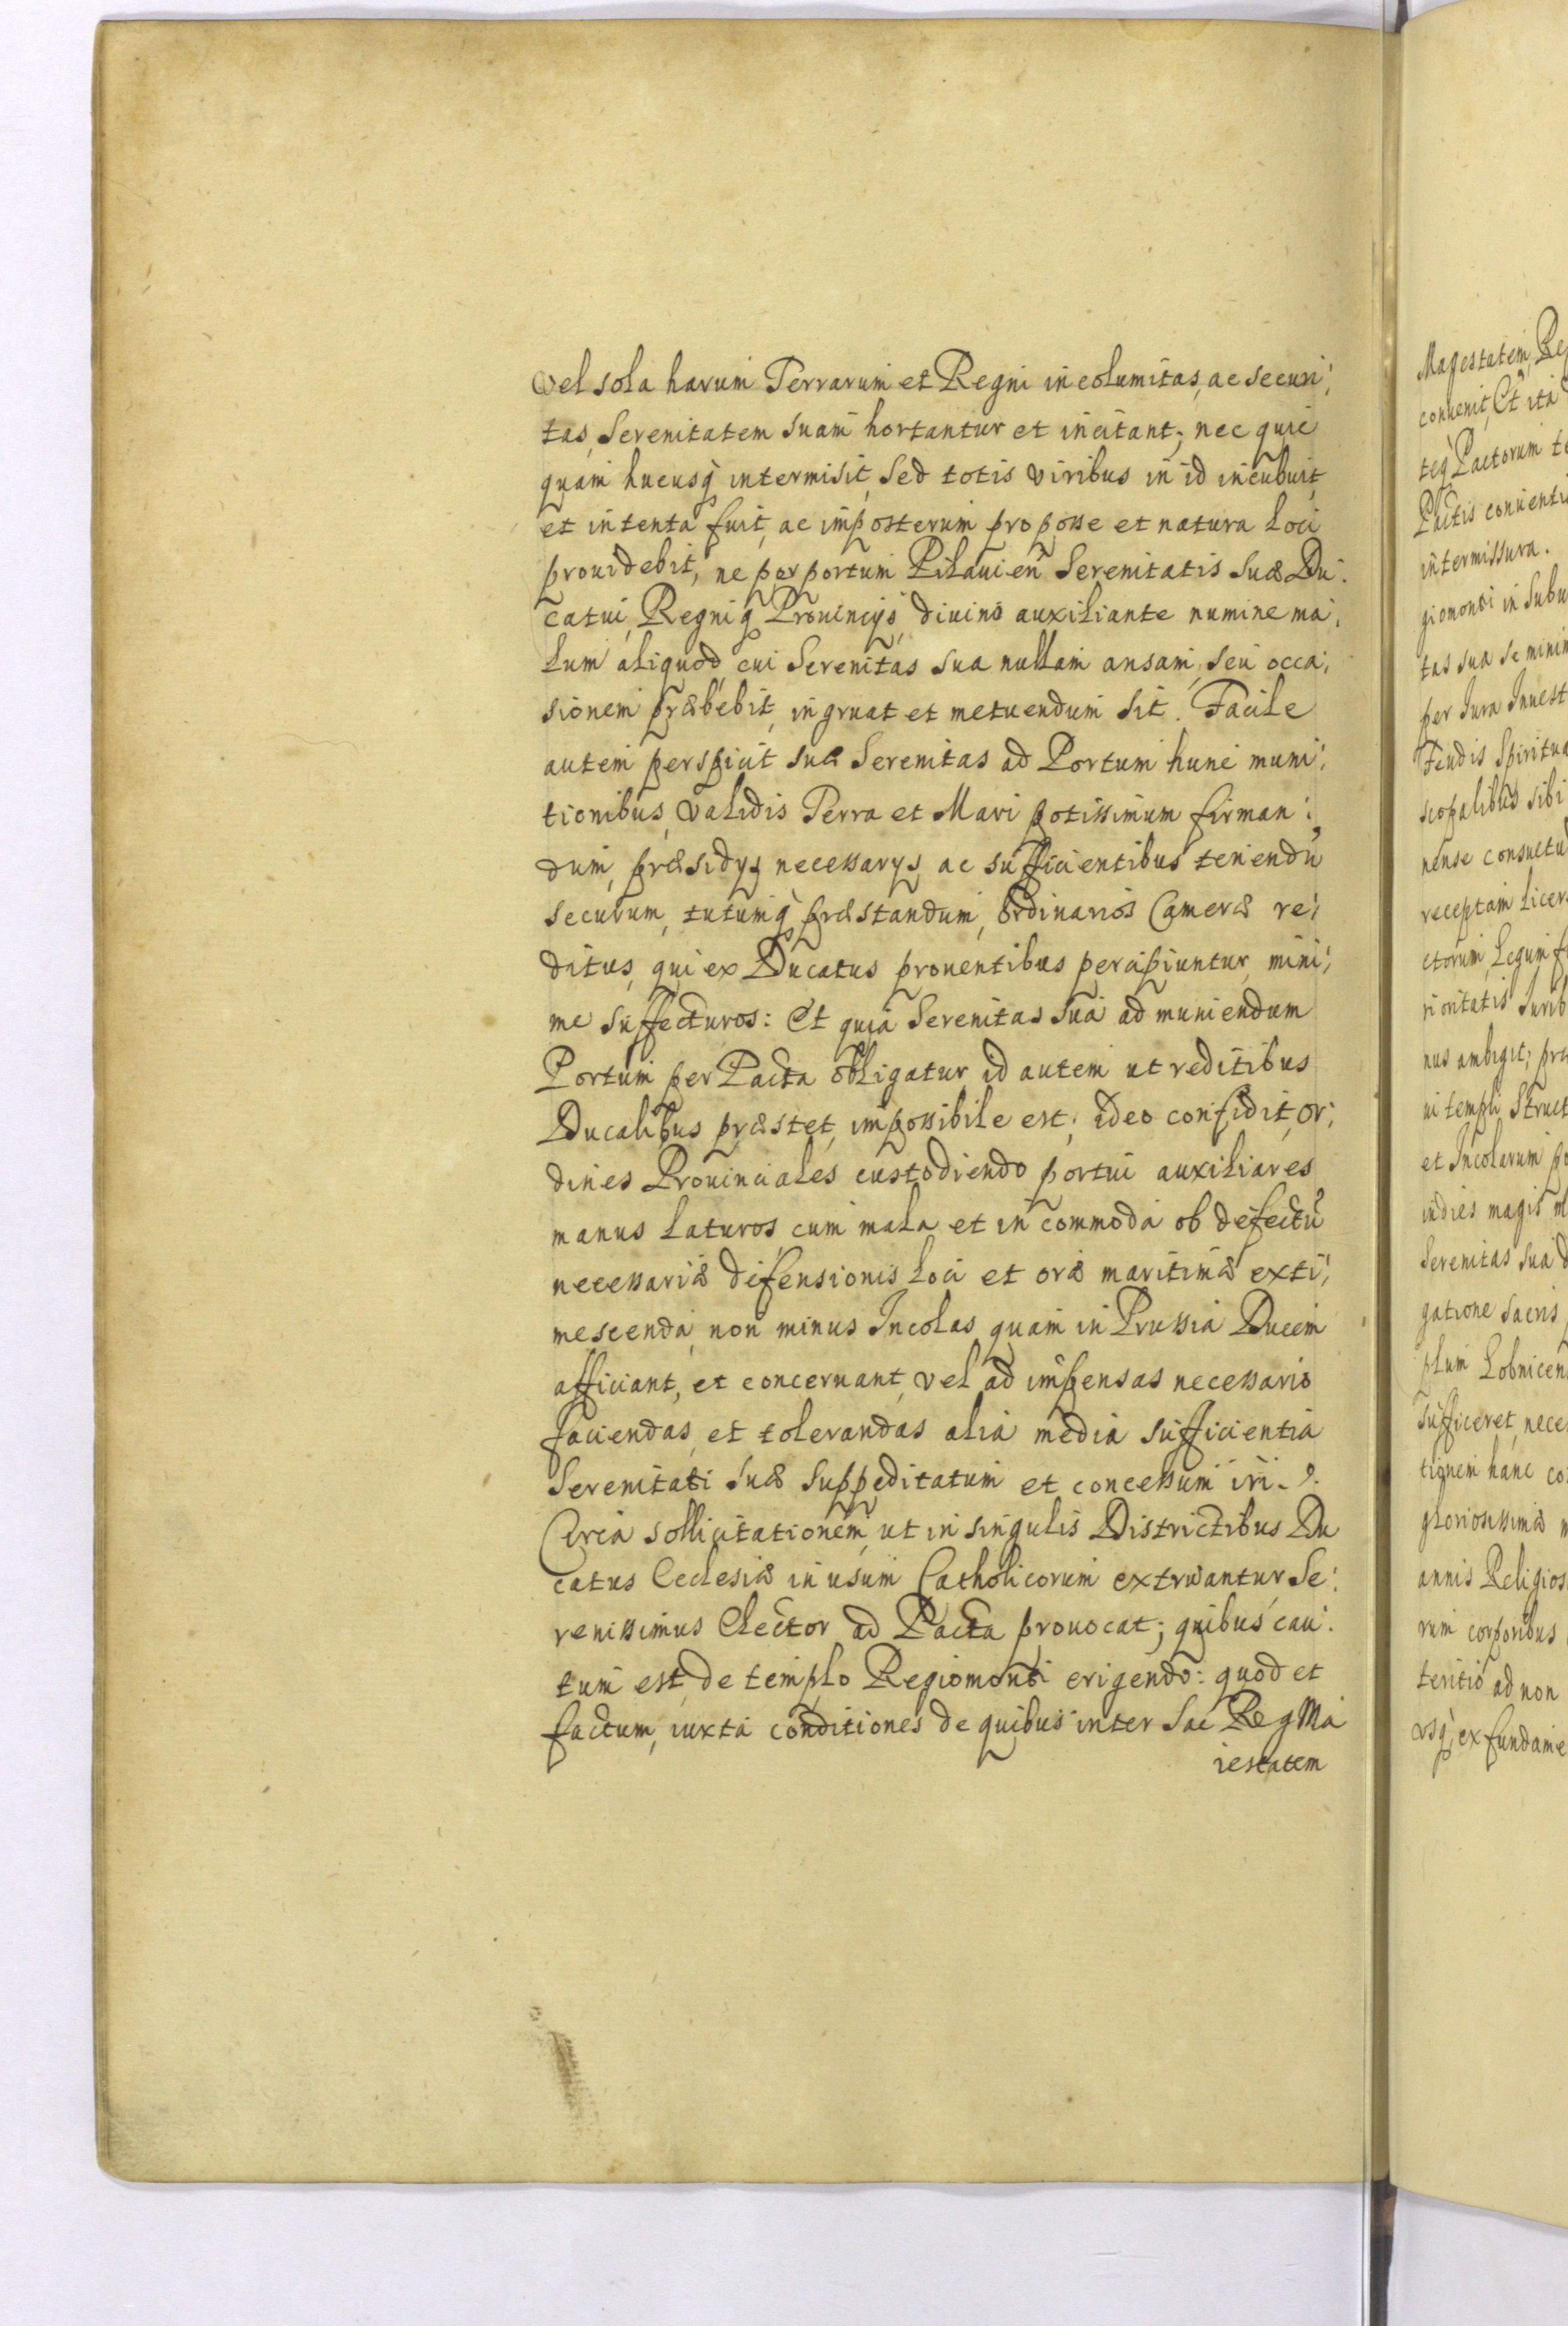 Vel sola harum Terrarum et Regni incolumitas, ac securi:
tas, Serenitatem suam hortantur et incitant; nec quic
quam hucusq̀ intermisit, sed totis viribus in id incubuit,
et intenta fuit, ac imposterum pro posse et natura loci
prouidebit, ne per portum Pilauien̄ Serenitatis Suæ Du:
catui, Regniq̀ Prouincijs, diuino auxiliante numine ma:
lum aliquod, cui Serenitas sua nullam ansam, seu occa:
sionem præbebit, ingruat et metuendum sit. Facile
autem perspicit sua Serenitas ad Portum hunc muni:
tionibus, validis Terra et Mari potissimum firman:
dum, præsidys necessarys, ac sufficientibus tenendū
securum, tutumq̀ præstandum, ordinarios Cameræ re:
ditus, qui ex Ducatus prouentibus percipiuntur, mini:
me suffecturos: Et quia Serenitas Sua ad muniendum
Portum per Pacta obligatur, id autem ut reditibus
Ducalibus præstet, impossibile est; ideo confidit, or:
dines Prouinciales custodiendo portui auxiliares
manus laturos, cum mala et incommoda ob defectū
necessariæ defensionis loci et oræ maritimæ exti:
mescenda, non minus Incolas quam in Prussia Ducem
afficiant, et concernant, vel ad impensas necessario
faciendas, et tolerandas alia media sufficientia
Serenitati Suæ suppeditatum et concessum iri.
Circa sollicitationem, ut in singulis Districtibus Du
catus Ecclesiæ in usum Catholicorum extruantur, Se:
renissimus Elector ad Pacta prouocat; quibus cau:
tum est, de templo Regiomonti erigendo: quod et
factum, iuxta conditiones de quibus inter Sac Reg Ma
iestatem
Magestatem, Re
conuenit, Et ita
teq̀ Pactorum te
Pactis conuenti
intermissura.
giomonti in Subu
tas sua se minim
per Iura Inuest
Feudis Spiritua
scopalibus sibi
nense consuetud
receptam licer
ctorum, Legum f
rioritatis Iurib
nus ambigit; pr
ui templi Struct
et Incolarum po
indies magis m
Serenitas sua d
gatione Sacris
plum Lobnicen
sufficeret, nece
tionem hanc co
gloriosissimæ m
annis Religios
rum corporibus
teritio ad non
vsq̀ ex fundame